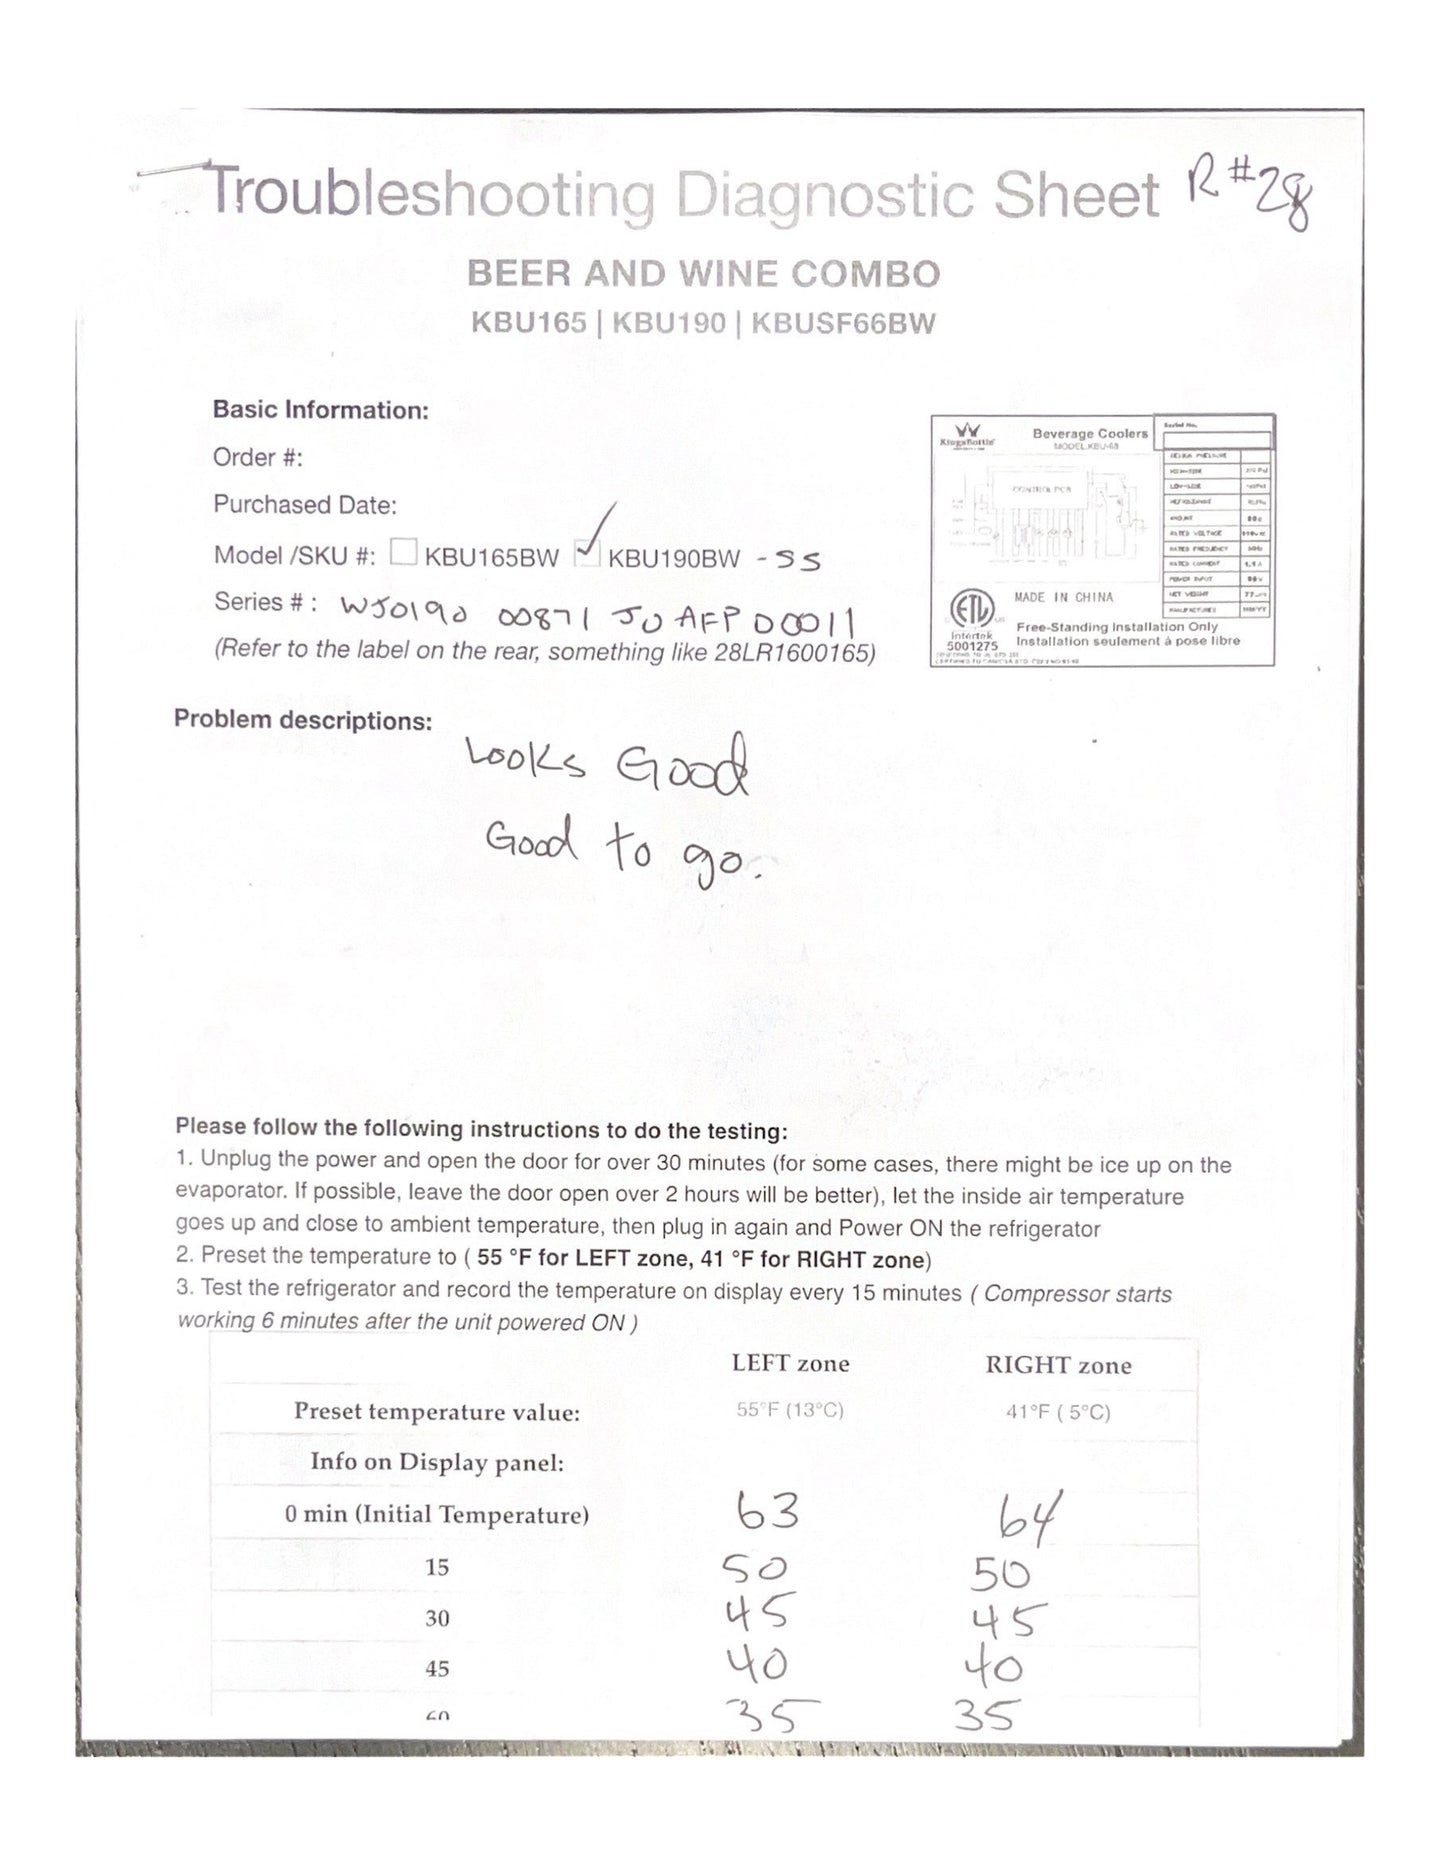 Troubleshooting Diagnostic Sheet R#28
BEER AND WINE COMBO
KBU165 | KBU190 | KBUSF66BW
Basic Information:
Order #:
Purchased Date:
Model /SKU #: KBU165BW ✓ KBU190BW - SS
Series # : WJ0190 00871 JUAFPD0011
(Refer to the label on the rear, something like 28LR1600165)
KingsBottle
Beverage Coolers
MODEL:KBU-68
Serial No.
CONTROL PCB
RATED VOLTAGE
RATED FREQUENCY
RATED CURRENT
POWER INPUT
NET WEIGHT
ETL
Intertek
5001275
MADE IN CHINA
Free-Standing Installation Only
Installation seulement à pose libre
Problem descriptions:
Looks Good
Good to go.
Please follow the following instructions to do the testing:
1. Unplug the power and open the door for over 30 minutes (for some cases, there might be ice up on the
evaporator. If possible, leave the door open over 2 hours will be better), let the inside air temperature
goes up and close to ambient temperature, then plug in again and Power ON the refrigerator
2. Preset the temperature to ( 55 °F for LEFT zone, 41 °F for RIGHT zone)
3. Test the refrigerator and record the temperature on display every 15 minutes ( Compressor starts
working 6 minutes after the unit powered ON )
LEFT zone RIGHT zone
Preset temperature value: 55°F (13°C) 41°F ( 5°C)
Info on Display panel:
0 min (Initial Temperature) 63 64
15 50 50
30 45 45
45 40 40
60 35 35